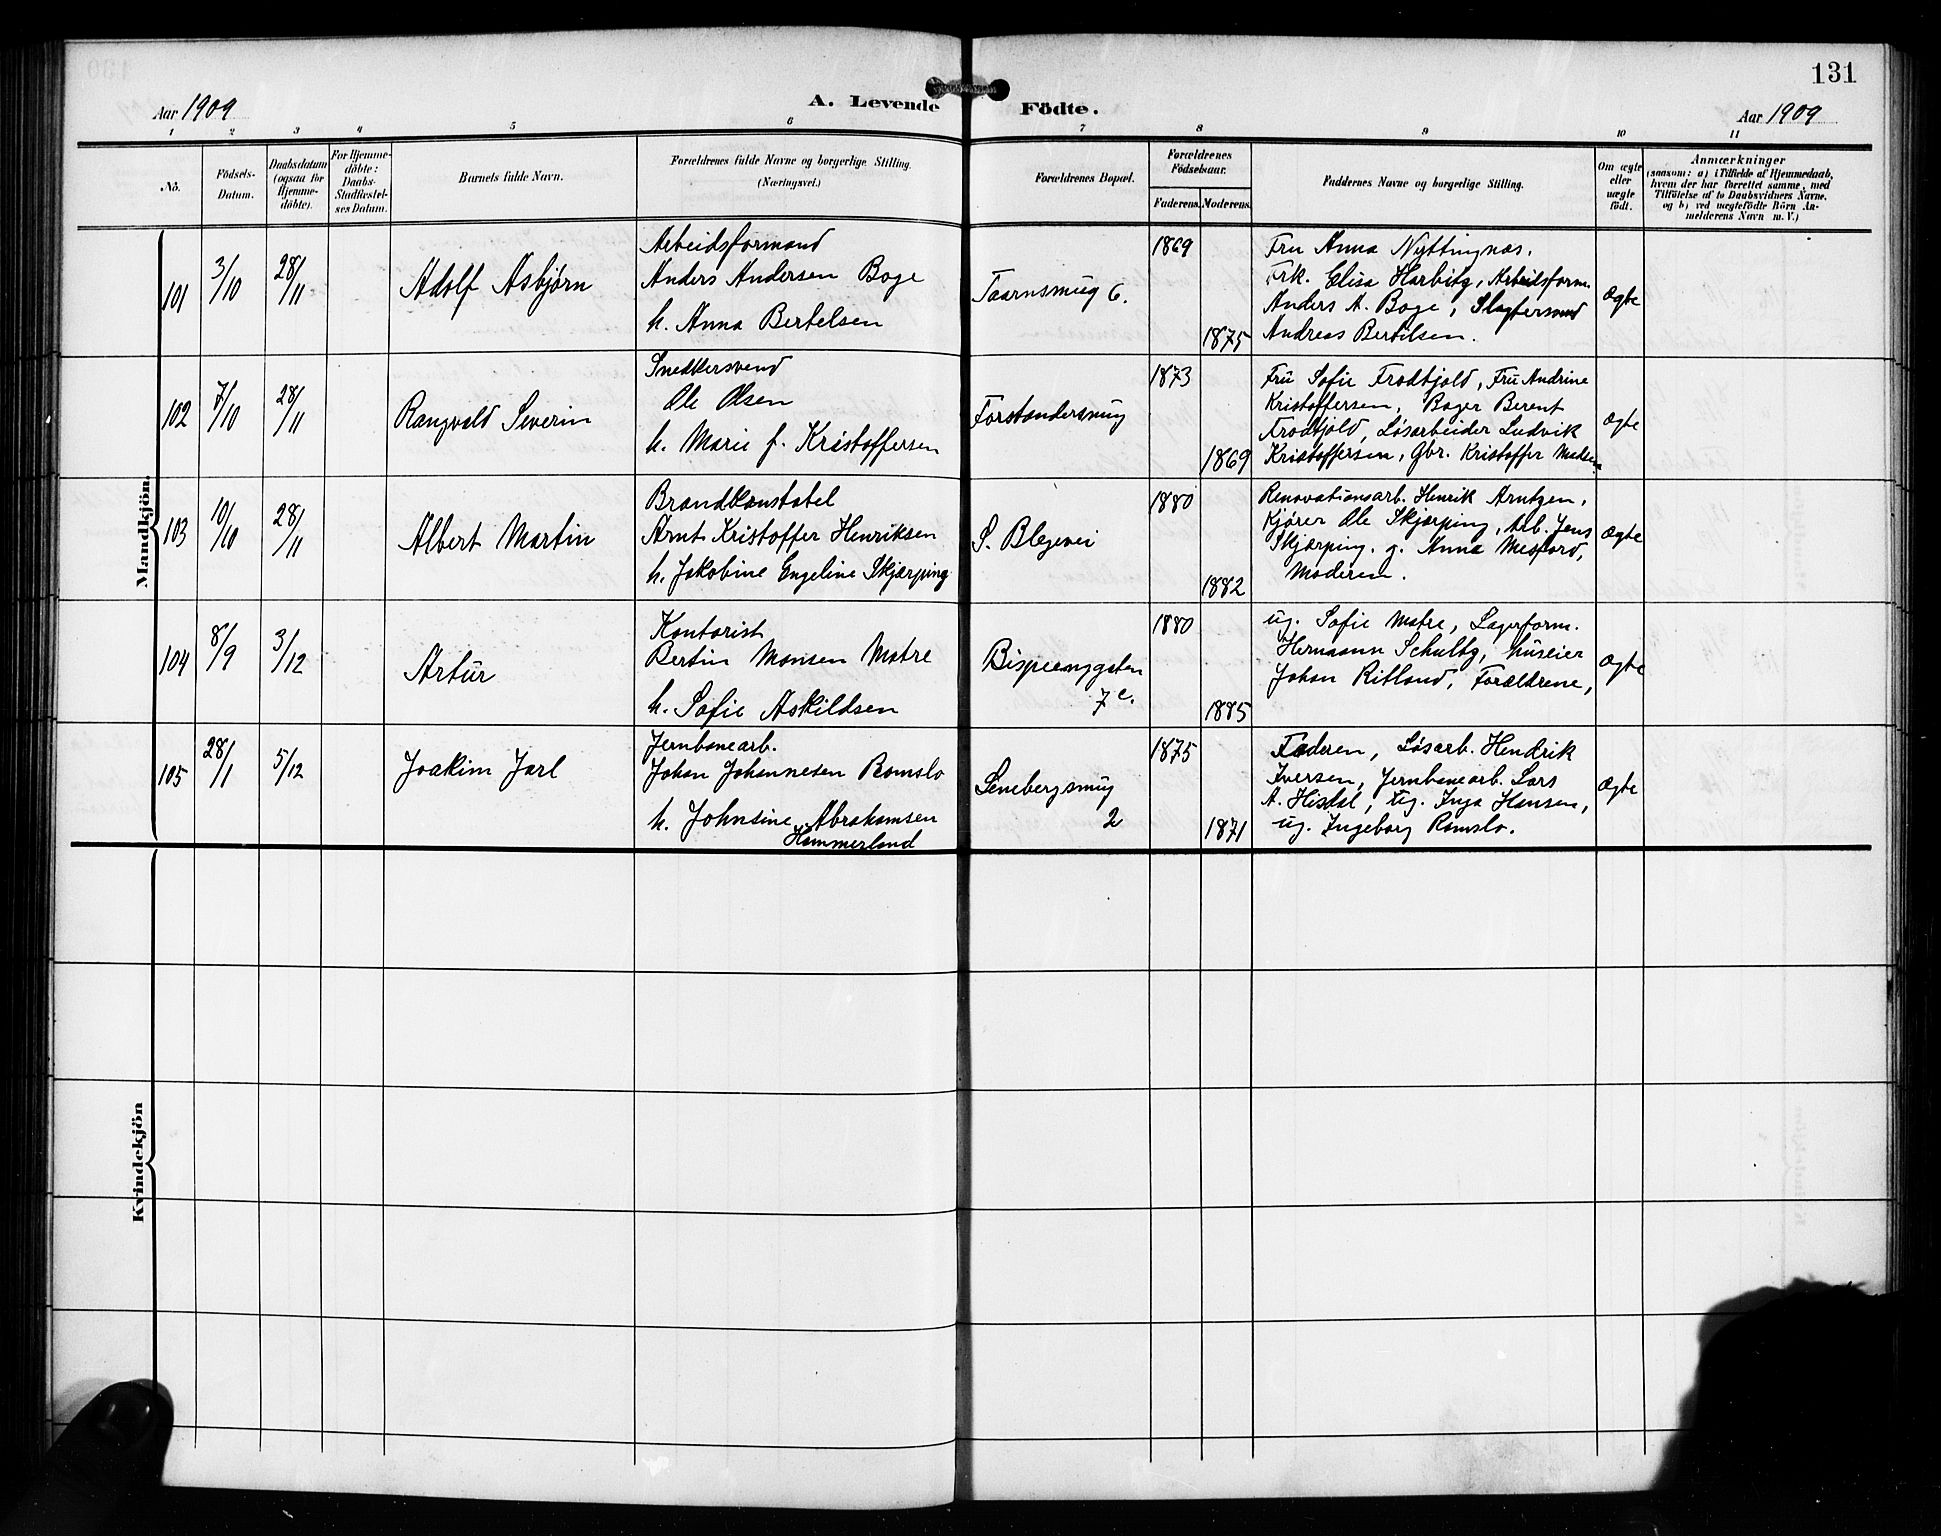 131
Aar 1909
A. Levende Födte.
Aar 1909
1 2 3 4 5 6 7 8 9 10 11
No.
Födsels-
Datum.
Daabsdatum
(ogsaa for
Hjemme-
döbte).
For Hjemme-
döbte:
Daabs-
Stadfæstel-
ses Datum.
Barnets fulde Navn.
Forældrenes fulde Navne og borgerlige Stilling.
(Næringsvei.)
Forældrenes Bopæl.
Forældrenes
Födselsaar.
Faderens. Moderens.
Faddernes Navne og borgerlige Stilling.
Om ægte
eller
uægte
födt.
Anmærkninger
(saasom: a) i Tilfælde af Hjemmedaab,
hvem der har forrettet samme, med
Tilföielse af to Daabsvidners Navne.
og b) ved uægtefödte Börn An-
melderens Navn m. V.)
Mandkjön
101
3/10
28/11
Adolf Asbjørn
Arbeidsformand
Anders Andersen Boge
h. Anna Bertelsen
Taarnsmug 6.
1869
1875
Fru Anna Nyttingnæs.
Frk. Elisa Harbitz, Arbeidsform.
Anders A. Boge, Slagtersvend
Andreas Bertilsen.
Ægte
102
7/10
28/11
Rangvald Severin
Snedkersvend
Ole Olsen
h. Marie f. Kristoffersen
Forstandersmug
1873
1869
Fru Sofie Frodtjold, Fru Andrine
Kristoffersen, Bager Berent
Frodtjold, Løsarbeider Ludvik
Kristoffersen, Gbr. Kristoffer Madsen
Ægte
103
10/10
28/11
Albert Martin
Brandkonstabel
Arnt Kristoffer Henriksen
h. Jakobine Engeline Skjærping
S. Blegevei
1880
1882
Renovationsarb. Henrik Arntzen,
Kjører Ole Skjærping, Arb. Jens
Skjærping. g. Anna Mesford,
Moderen.
Ægte
104
8/9
3/12
Artur
Kontorist
Bertin Monsen Matre
h. Sofie Askildsen
Bispeenggaten
7c.
1880
1885
ug. Sofie Matre, Lagerform.
Hermann Schultz, huseier
Johan Ritland, Forældrene,
Ægte
105
28/1
5/12
Joakim Jarl
Jernbanearb.
Johan Johannesen Romslo
h. Johnsine Abrahamsen
Hammerland
Lenebergsmug
2
1875
1871
Faderen, Løsarb. Hendrik
Iversen, Jernbanearb. Lars
A. Histal, ug. Inga Hansen,
ug. Ingeborg Romslo.
Ægte
Kvindekjön